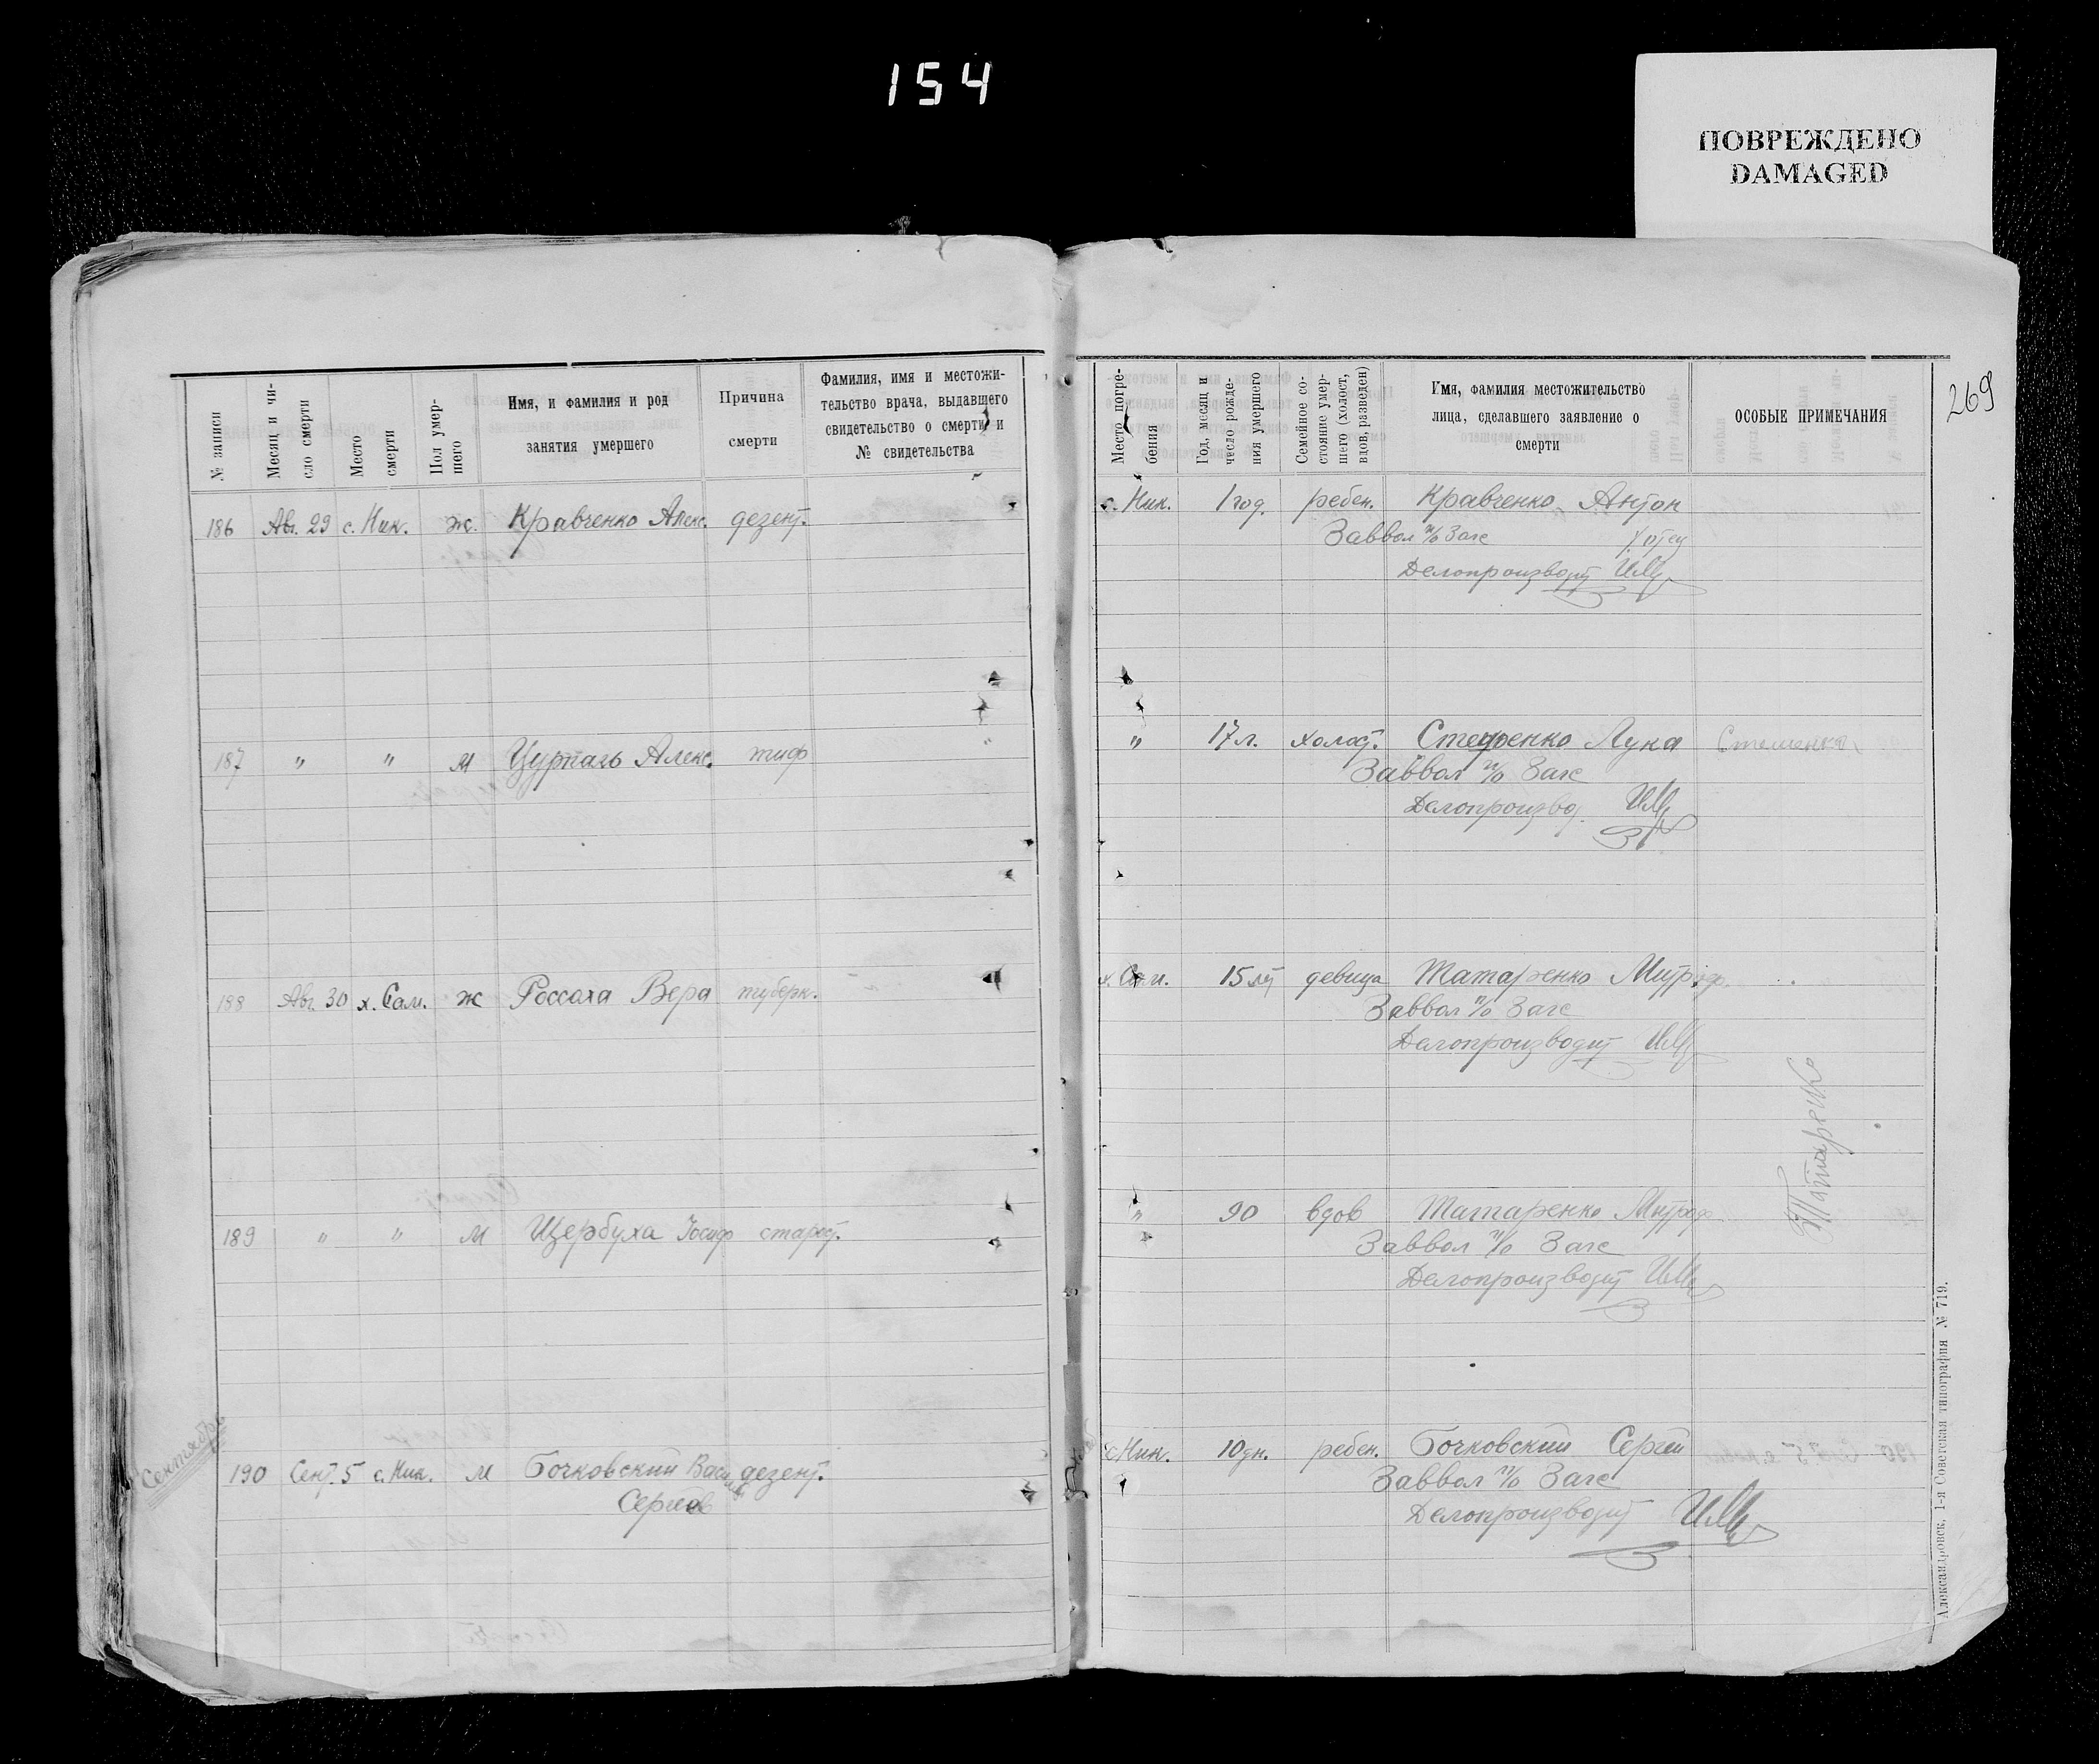 154
ПОВРЕЖДЕНО
DAMAGED
269
№ записи
Месяц и чи-
сло смерти
Место
смерти
Пол умер-
шего
Имя, и фамилия и род
занятия умершего
Причина
смерти
Фамилия, имя и местожи-
тельство врача, выдавшего
свидетельство о смерти и
№ свидетельства
Место погре-
бения
Год, месяц и
число рожде-
ния умершего
Семейное со-
стояние умер-
шего (холост,
вдов, разведен)
Имя, фамилия местожительство
лица, сделавшего заявление о
смерти
ОСОБЫЕ ПРИМЕЧАНИЯ
186 Авг. 29 с. Ник. ж. Кравченко Алекс. дезент.
с. Ник. 1 год. ребен. Кравченко Антон
Заввол п/о Загс отец
Делопроизводит
187 " " м Цурпаль Алекс. тиф
" 17 л. холост. Стеценко Лука Стеценко
Заввол п/о Загс
Делопроизвод.
188 Авг. 30 х. Сам. ж Россоха Вера туберк.
х. Сам. 15 лет девица Татаренко Митроф.
Заввол п/о Загс
Делопроизводит
189 " " м Щербуха Иосиф старост.
" 90 вдов Татаренко Митроф.
Заввол п/о Загс
Делопроизводит
Татаренко
Сентябрь
190 Сент. 5 с. Ник. м Бочковский Васил дезент.
Сергеев
с. Ник. 10 дн. ребен. Бочковский Сергей
Заввол п/о Загс
Делопроизводит
Александровск, 1-я Советская типография № 719.